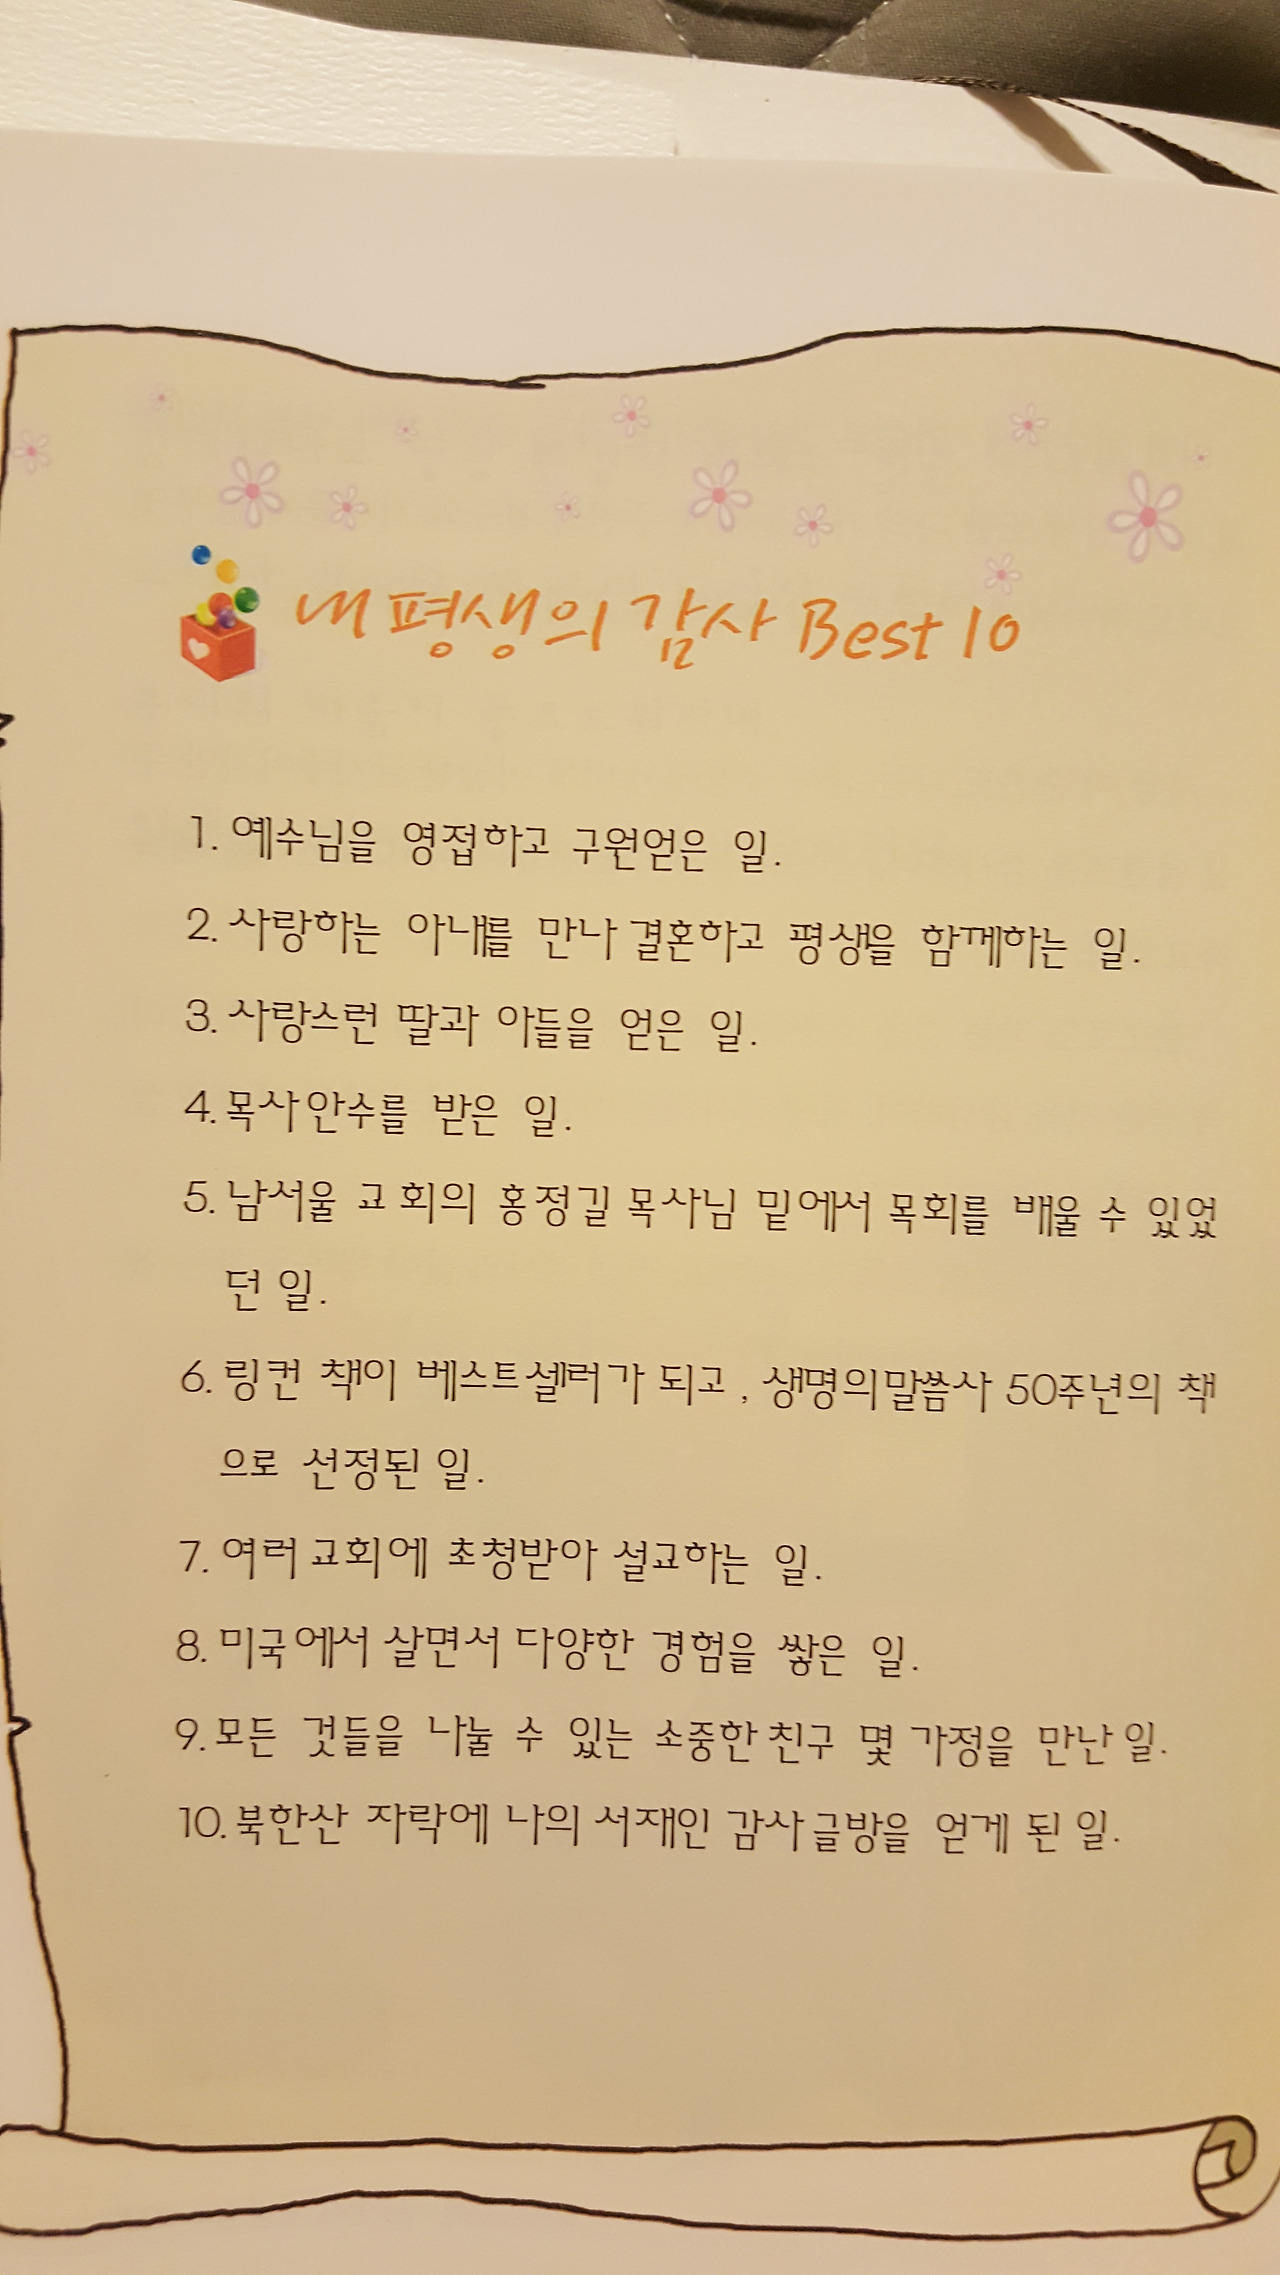 내 평생의 감사 Best 10
1. 예수님을 영접하고 구원얻은 일.
2. 사랑하는 아내를 만나 결혼하고 평생을 함께하는 일.
3. 사랑스런 딸과 아들을 얻은 일.
4. 목사안수를 받은 일.
5. 남서울 교회의 홍정길 목사님 밑에서 목회를 배울 수 있었
던 일.
6. 링컨 책이 베스트셀러가 되고, 생명의말씀사 50주년의 책
으로 선정된 일.
7. 여러 교회에 초청받아 설교하는 일.
8. 미국에서 살면서 다양한 경험을 쌓은 일.
9. 모든 것들을 나눌 수 있는 소중한 친구 몇 가정을 만난 일.
10. 북한산 자락에 나의 서재인 감사글방을 얻게 된 일.